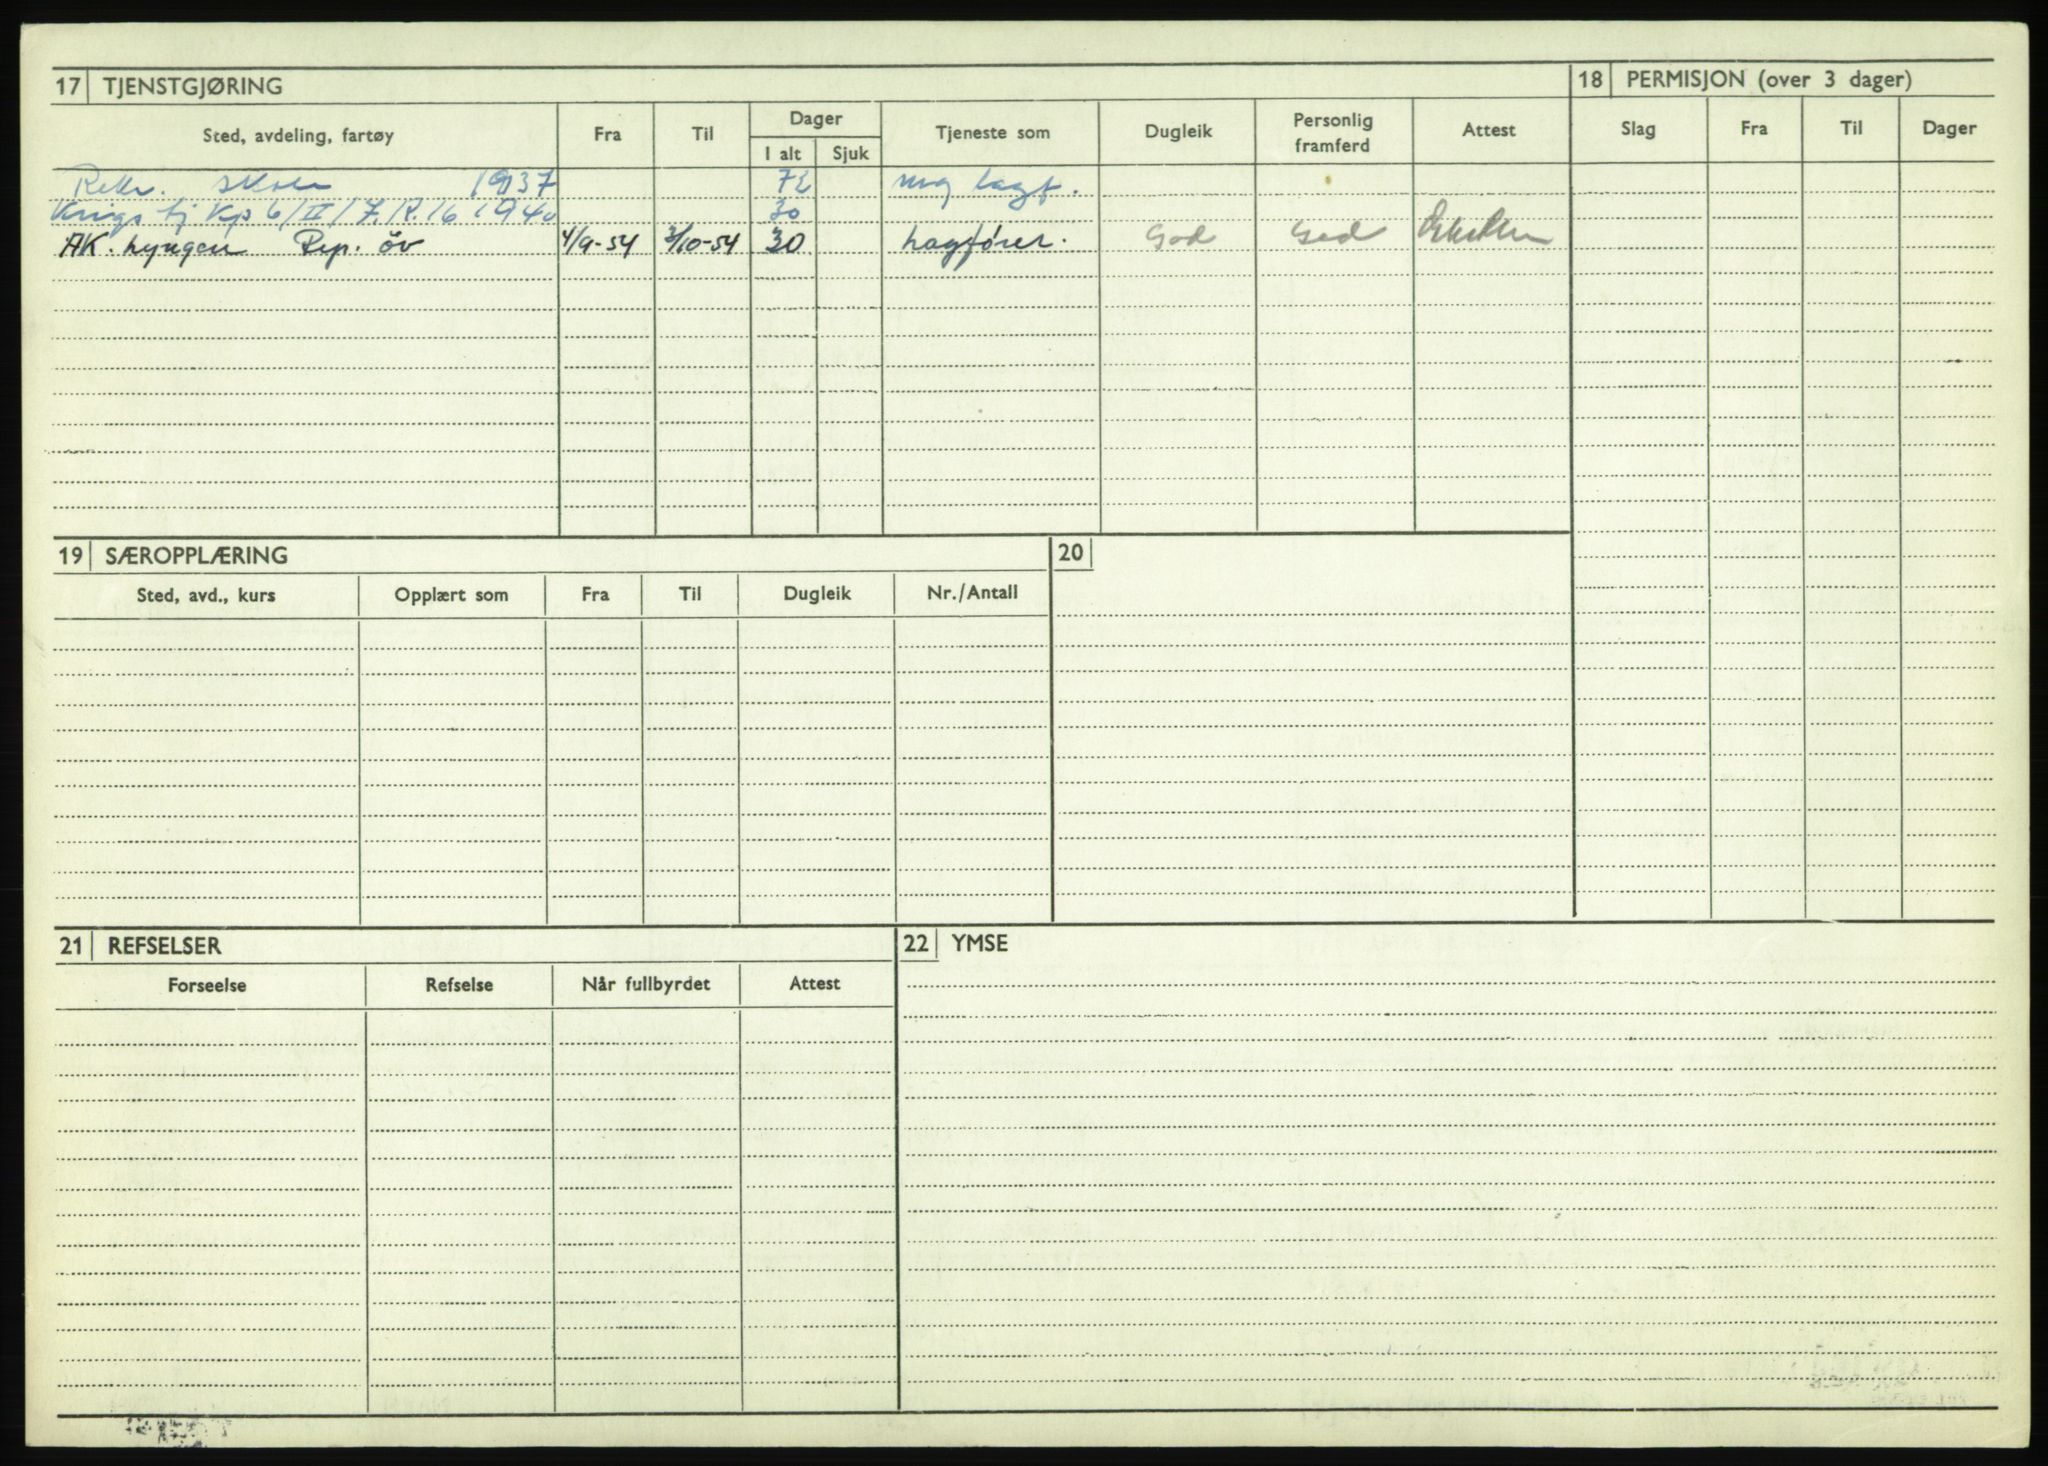 17 TJENSTGJØRING
18 PERMISJON (over 3 dager)
Sted, avdeling, fartøy Fra Til Dager Tjeneste som Dugleik Personlig framferd Attest Slag Fra Til Dager
I alt Sjuk
Rekr. skole 1937 72 mg lagf.
Krigs tj Kp 6/II/I.R.16 1940 30
AK. Lyngen Rep. öv 4/9-54 3/10-54 30 Lagfører. God God
19 SÆROPPLÆRING
20
Sted, avd., kurs Opplært som Fra Til Dugleik Nr./Antall
21 REFSELSER
22 YMSE
Forseelse Refselse Når fullbyrdet Attest